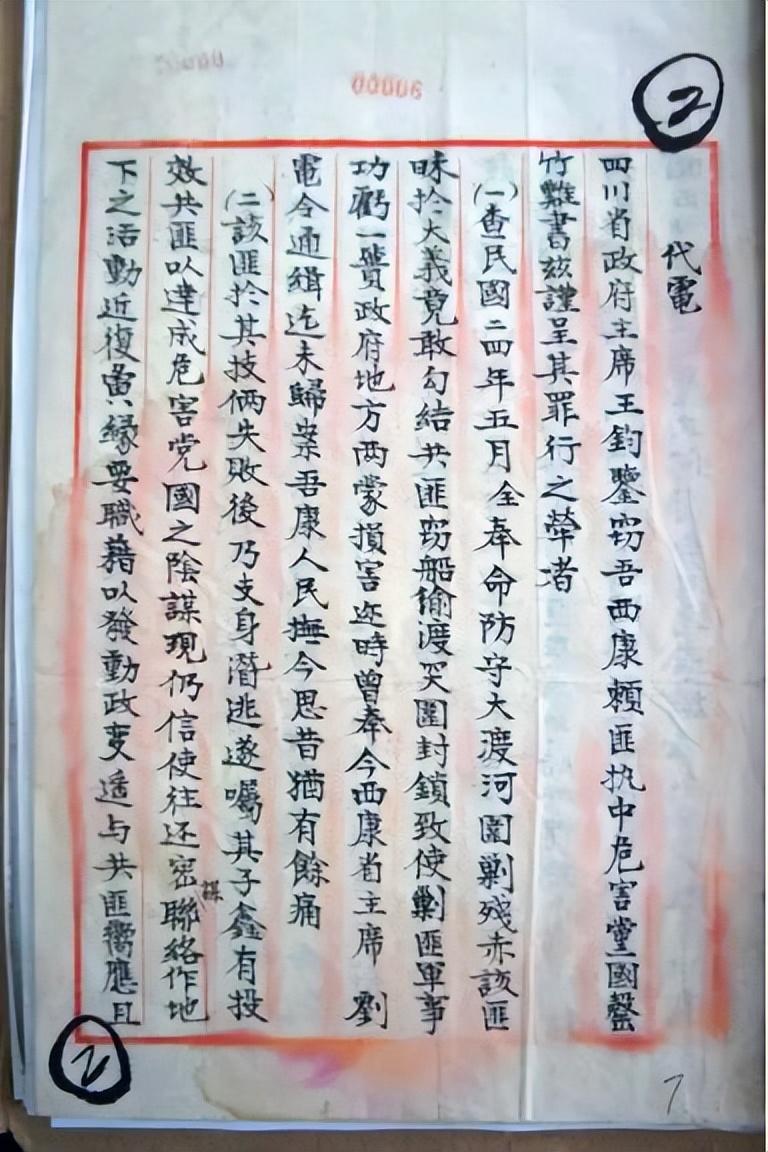 00006
2
代電
四川省政府主席王鈞鑒窃吾西康賴匪执中危害黨國罄
竹難書茲謹呈其罪行之犖者
(一)查民國二四年五月全奉命防守大渡河圍剿残赤該匪
昧於大義竟敢勾结共匪窃船偷渡突圍封鎖致使剿匪軍事
功虧一簣政府地方两蒙損害迩時曾奉今西康省主席 劉
電令通緝迄未歸案吾康人民撫今思昔猶有餘痛
(二)該匪於其技俩失敗後乃支身潛逃遂囑其子鑫有投
效共匪以達成危害党國之陰謀現仍信使往还密謀聯絡作地
下之活動近復夤緣要職藉以發動政变遥与共匪響應且
2
7